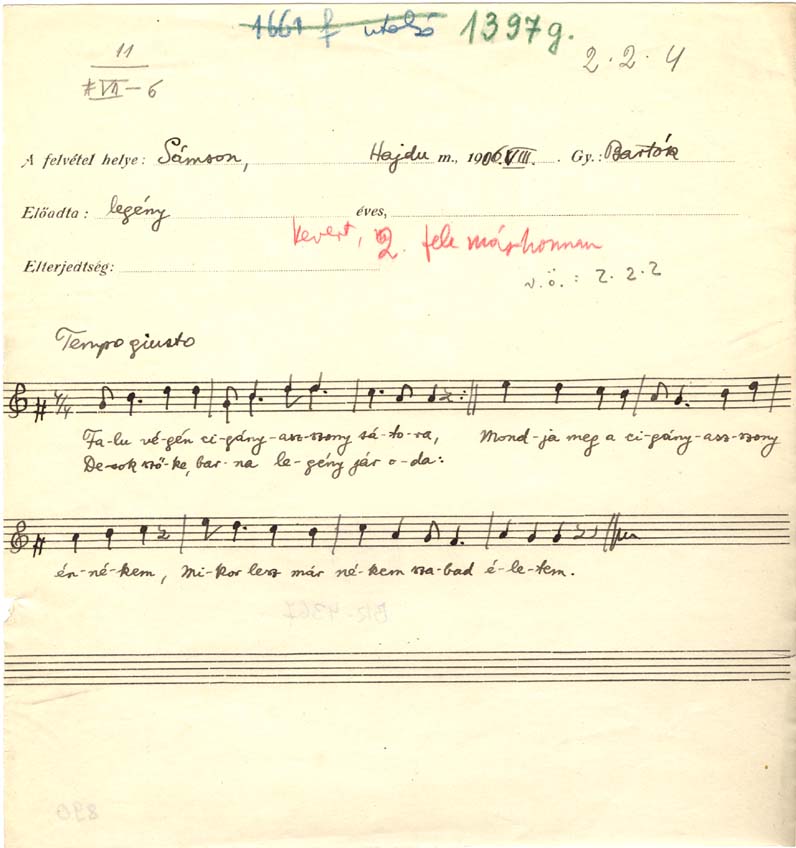 1661 f utolsó 1397g.
11
VII-6
2.2.4
A felvétel helye: Sámson, Hajdu m., 1906.VIII. Gy.: Bartók
Előadta: legény éves,
kevert, 2. fele máshonnan
Elterjedtség:
v.ö.: 2.2.2
Tempo giusto
4/4
Fa-lu vé-gén ci-gány-asz-szony sá-to-ra, Mond-ja meg a ci-gány-asz-szony
De sok sző-ke, bar-na le-gény jár o-da:
én-né-kem, Mi-kor lesz már né-kem sza-bad é-le-tem.
BR-4367
890